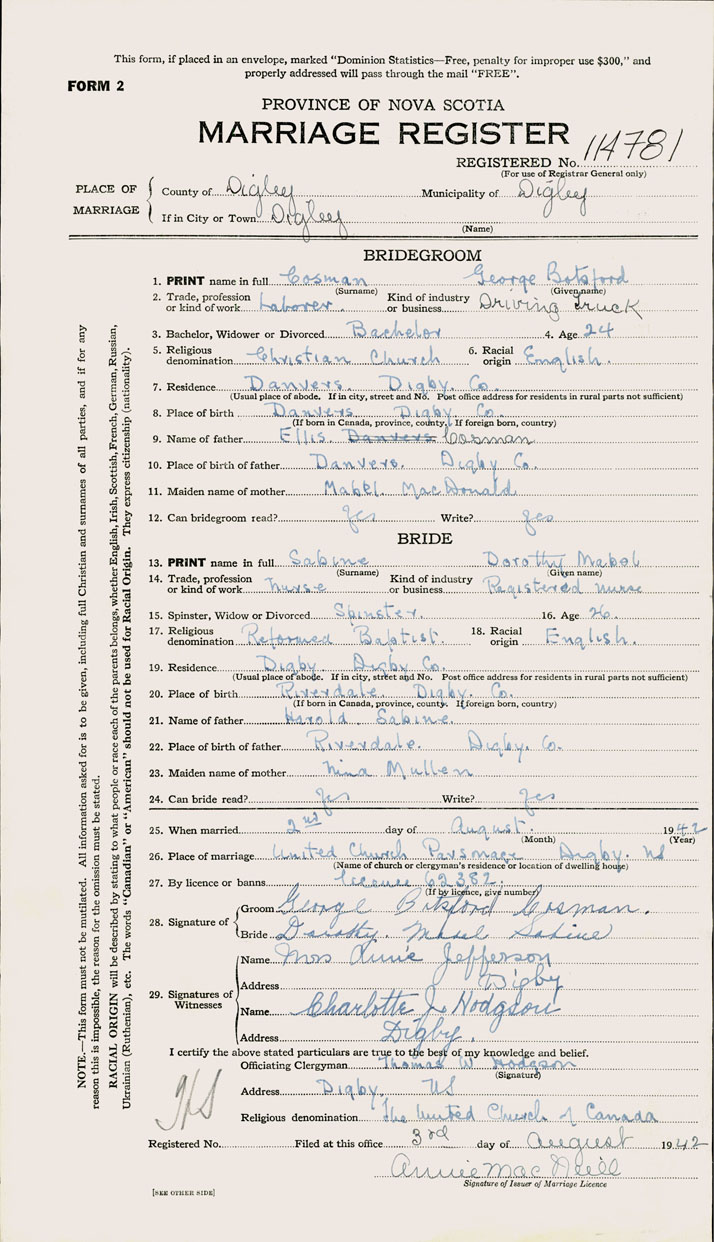 This form, if placed in an envelope, marked "Dominion Statistics—Free, penalty for improper use $300," and
properly addressed will pass through the mail "FREE".
FORM 2
PROVINCE OF NOVA SCOTIA
MARRIAGE REGISTER
REGISTERED No. 114781
(For use of Registrar General only)
PLACE OF MARRIAGE
County of Digby Municipality of Digby
If in City or Town Digby
(Name)
BRIDEGROOM
1. PRINT name in full Cosman George Botsford
(Surname) (Given name)
2. Trade, profession or kind of work Laborer Kind of industry or business Driving Truck
3. Bachelor, Widower or Divorced Bachelor 4. Age 24
5. Religious denomination Christian Church 6. Racial origin English.
7. Residence Danvers Digby Co.
(Usual place of abode. If in city, street and No. Post office address for residents in rural parts not sufficient)
8. Place of birth Danvers Digby Co.
(If born in Canada, province, county. If foreign born, country)
9. Name of father Ellis Danvers Cosman
10. Place of birth of father Danvers. Digby Co.
11. Maiden name of mother Mabel MacDonald
12. Can bridegroom read? Yes Write? yes
BRIDE
13. PRINT name in full Sabine Dorothy Mabel
(Surname) (Given name)
14. Trade, profession or kind of work nurse Kind of industry or business Registered nurse
15. Spinster, Widow or Divorced Spinster. 16. Age 26
17. Religious denomination Reformed Baptist. 18. Racial origin English.
19. Residence Digby Digby Co.
(Usual place of abode. If in city, street and No. Post office address for residents in rural parts not sufficient)
20. Place of birth Riverdale. Digby. Co.
(If born in Canada, province, county. If foreign born, country)
21. Name of father Harold Sabine.
22. Place of birth of father Riverdale. Digby. Co.
23. Maiden name of mother Nina Mullen
24. Can bride read? Yes Write? Yes
25. When married 2nd day of August. 1942
(Month) (Year)
26. Place of marriage United Church Parsonage Digby. NS
(Name of church or clergyman's residence or location of dwelling house)
27. By licence or banns licence 62382
(If by licence, give number)
28. Signature of
Groom George Botsford Cosman.
Bride Dorothy. Mabel Sabine
29. Signatures of Witnesses
Name Mrs Annie Jefferson
Address Digby
Name Charlotte J. Hodgson
Address Digby.
I certify the above stated particulars are true to the best of my knowledge and belief.
Officiating Clergyman Thomas W Hodgson
(Signature)
Address Digby. NS
Religious denomination The United Church of Canada
Registered No. Filed at this office 3rd day of August 1942
Annie MacNeill
Signature of Issuer of Marriage Licence
[SEE OTHER SIDE]
NOTE.—This form must not be mutilated. All information asked for is to be given, including full Christian and surnames of all parties, and if for any
reason this is impossible, the reason for the omission must be stated.
RACIAL ORIGIN will be described by stating to what people or race each of the parents belongs, whether English, Irish, Scottish, French, German, Russian,
Ukrainian (Ruthenian), etc. The words "Canadian" or "American" should not be used for Racial Origin. They express citizenship (nationality).